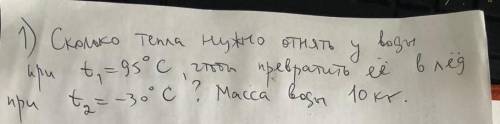 1) Сколько тепла нужно отнять у воды
при t₁ = 95° C, чтоб превратить её в лёд
при t₂ = -30° C? Масса воды 10 кг.